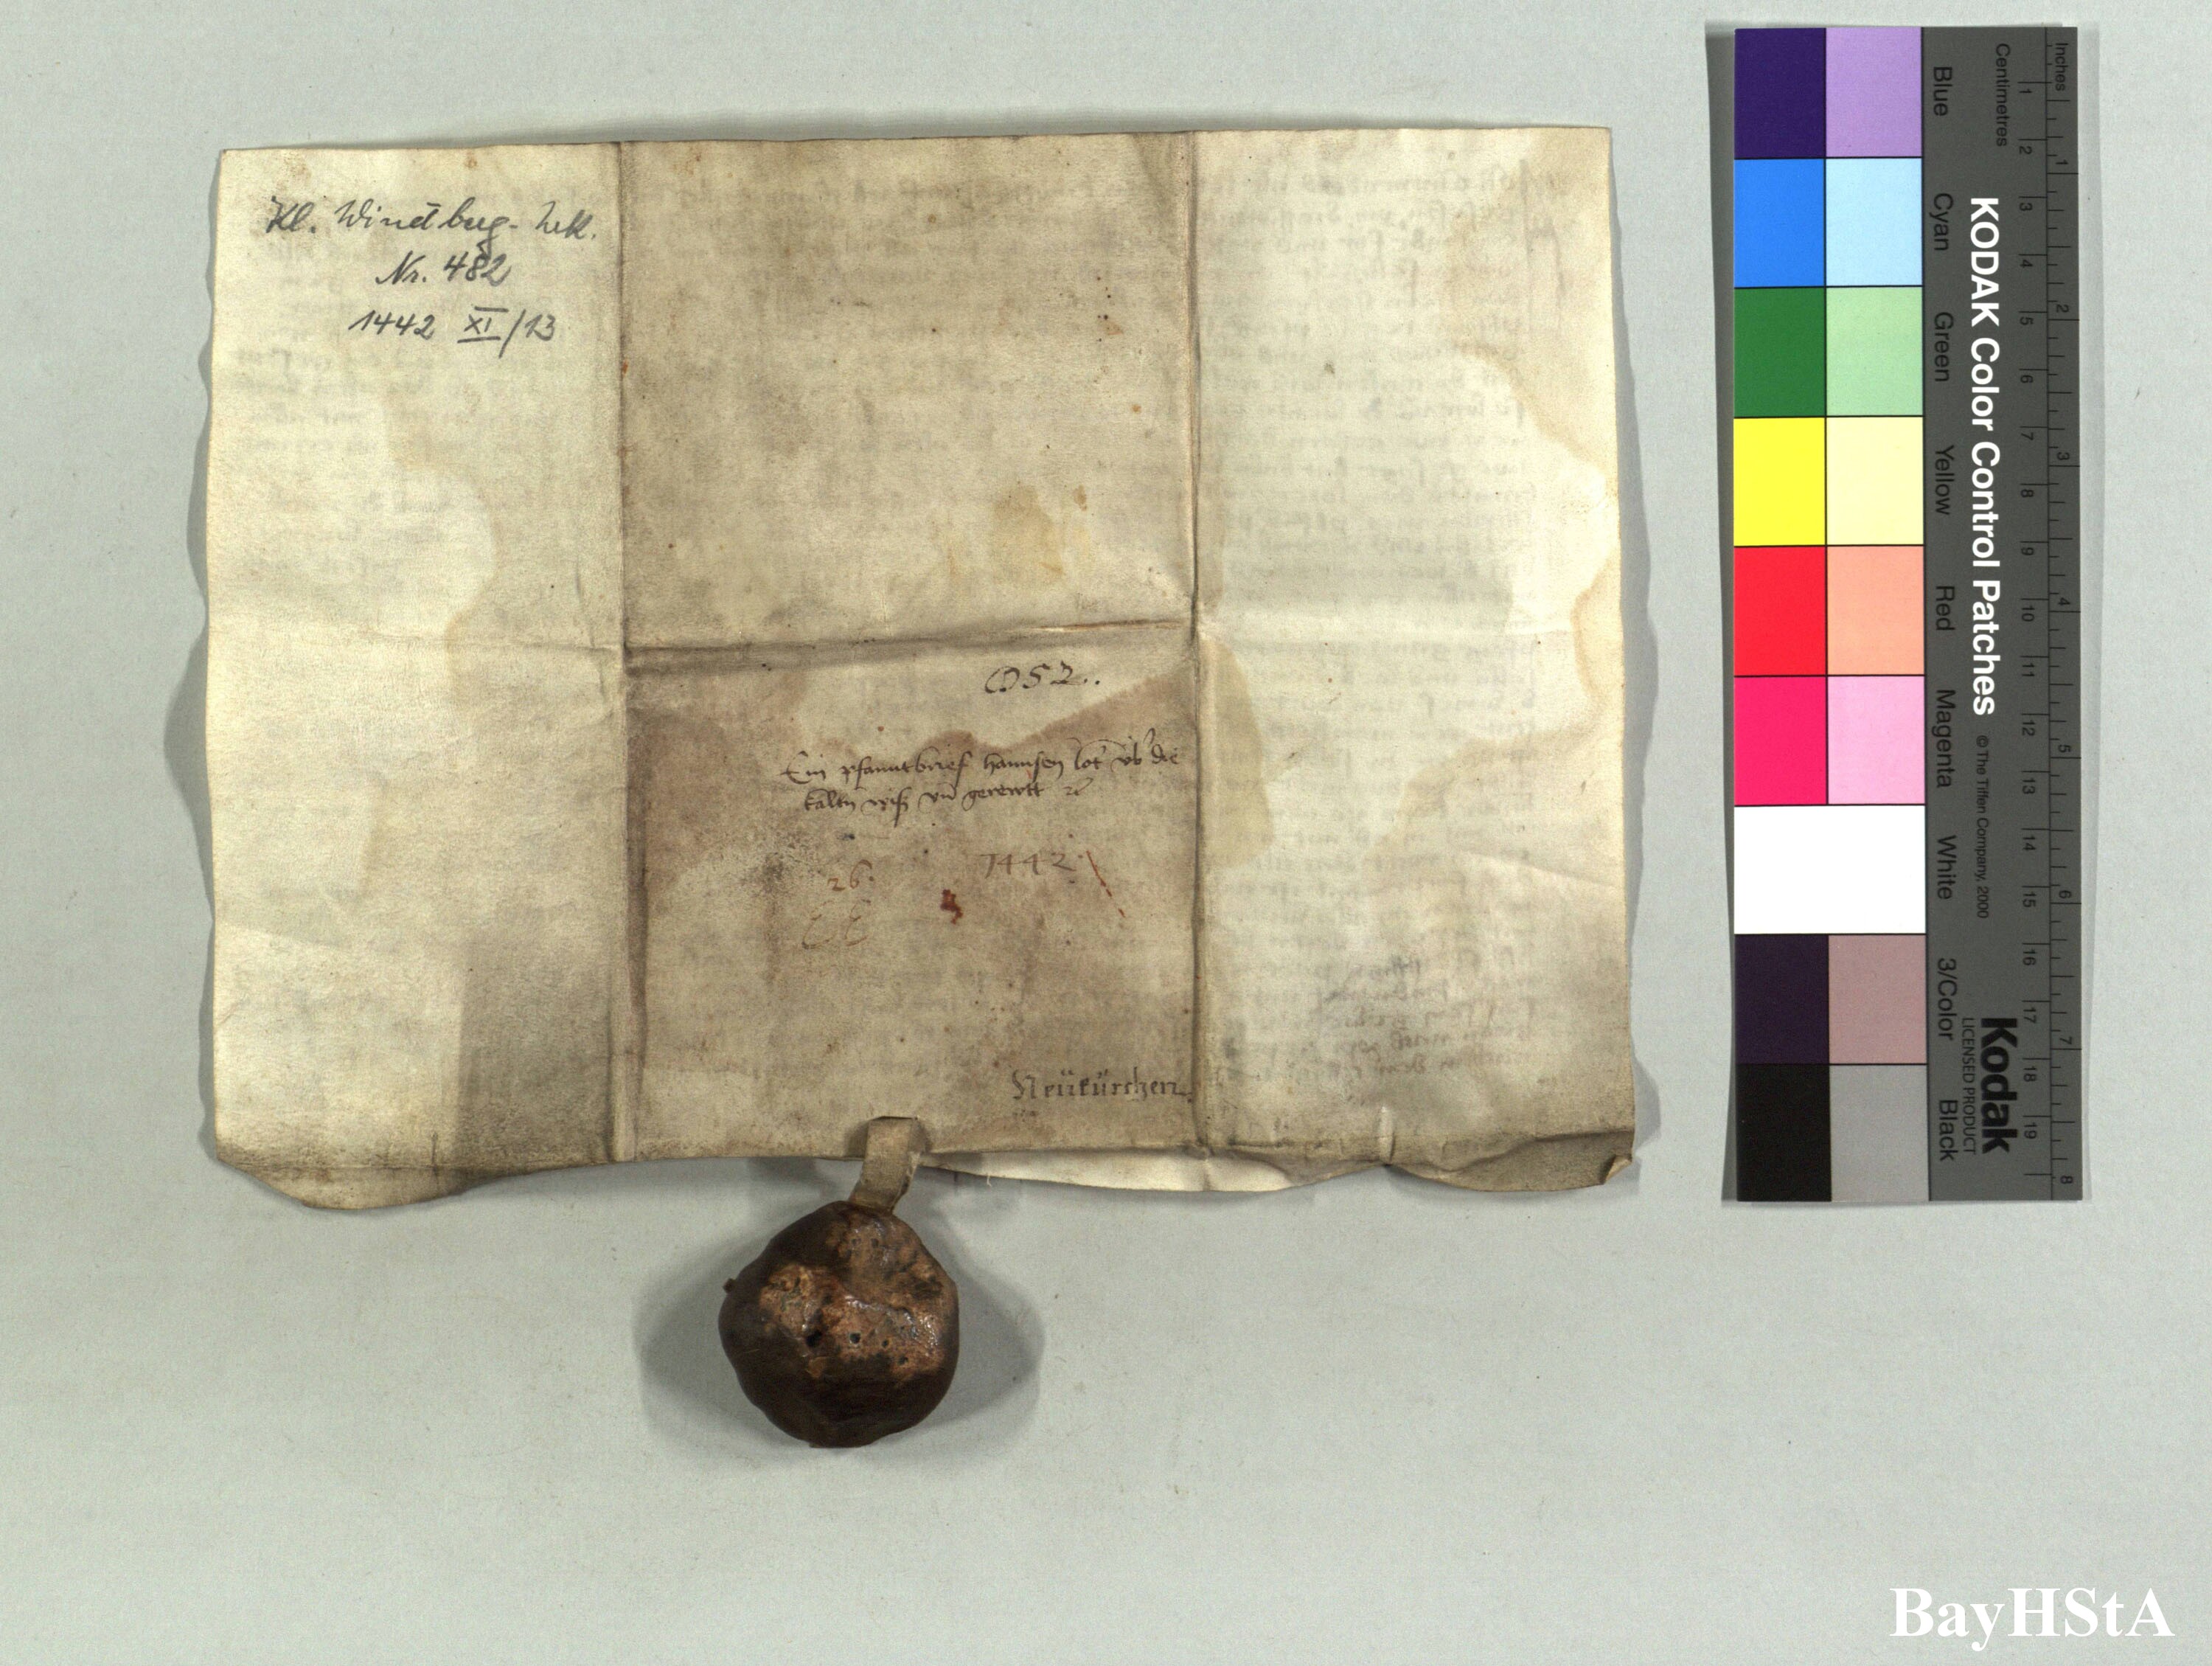 Kl. Windberg. Urk.
Nr. 482
1442 XI/13
Ein pfanntbrief hannsen lot vb die
kaltn wiß vn gerewtt
1442
26.
Neükürchen.
Blue
Cyan
Green
Yellow
Red
Magenta
White
3/Color
Black
Inches
Centimetres
KODAK Color Control Patches
© The Tiffen Company, 2000
Kodak
LICENSED PRODUCT
1 2 3 4 5 6 7 8 9 10 11 12 13 14 15 16 17 18 19
1 2 3 4 5 6 7 8
BayHStA